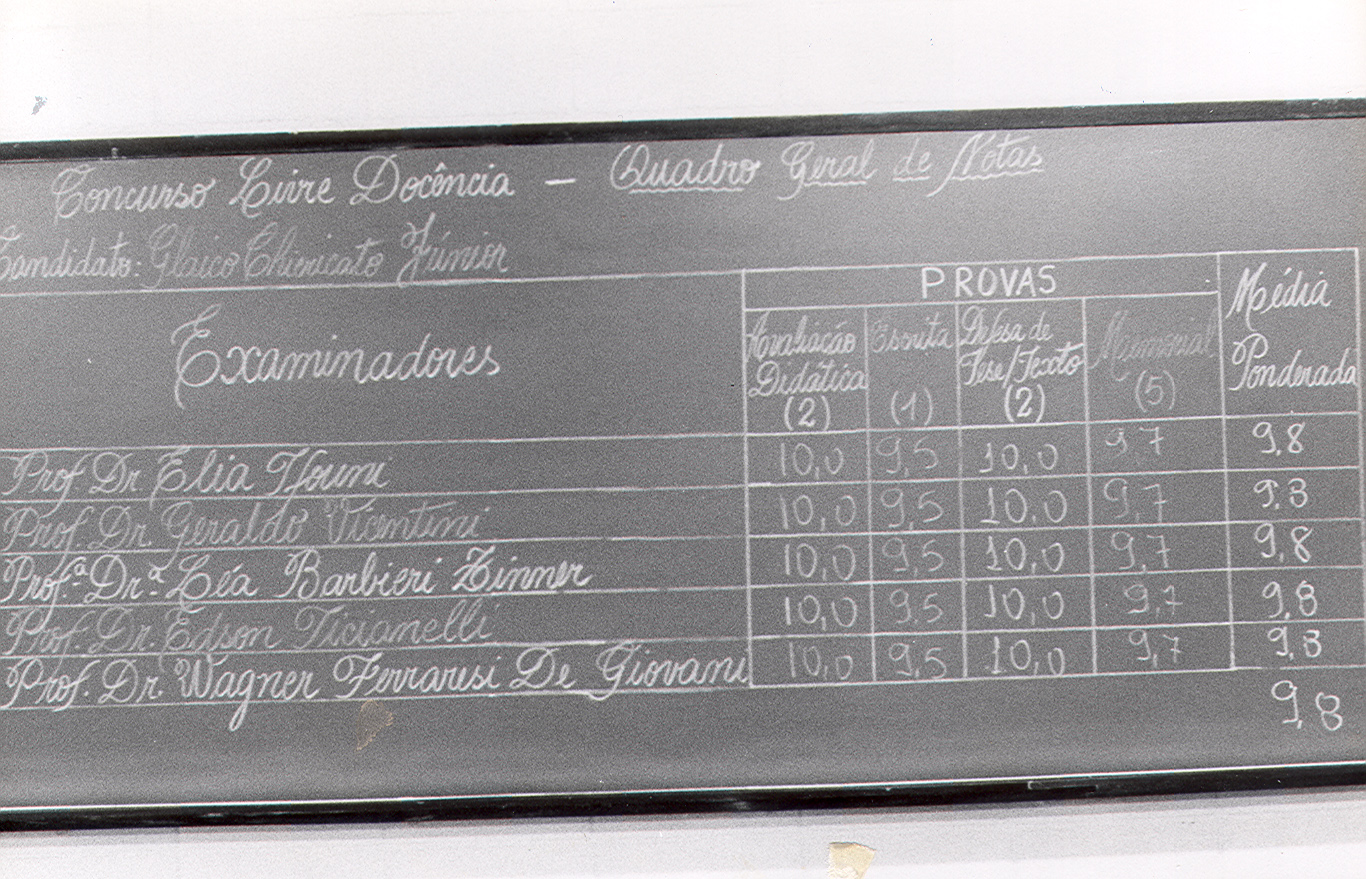 Concurso Livre Docência — Quadro Geral de Notas
Candidato: Glaico Chiericato Júnior
PROVAS
Média Ponderada
Examinadores
Avaliação Didática (2)
Escrita (1)
Defesa de Tese/Texto (2)
Memorial (5)
Prof Dr Elia Tfouni 10,0 9,5 10,0 9,7 9,8
Prof. Dr. Geraldo Vicentini 10,0 9,5 10,0 9,7 9,8
Prof.ª Dr.ª Léa Barbieri Zinner 10,0 9,5 10,0 9,7 9,8
Prof. Dr. Edson Ticianelli 10,0 9,5 10,0 9,7 9,8
Prof. Dr. Wagner Ferraresi De Giovani 10,0 9,5 10,0 9,7 9,8
9,8